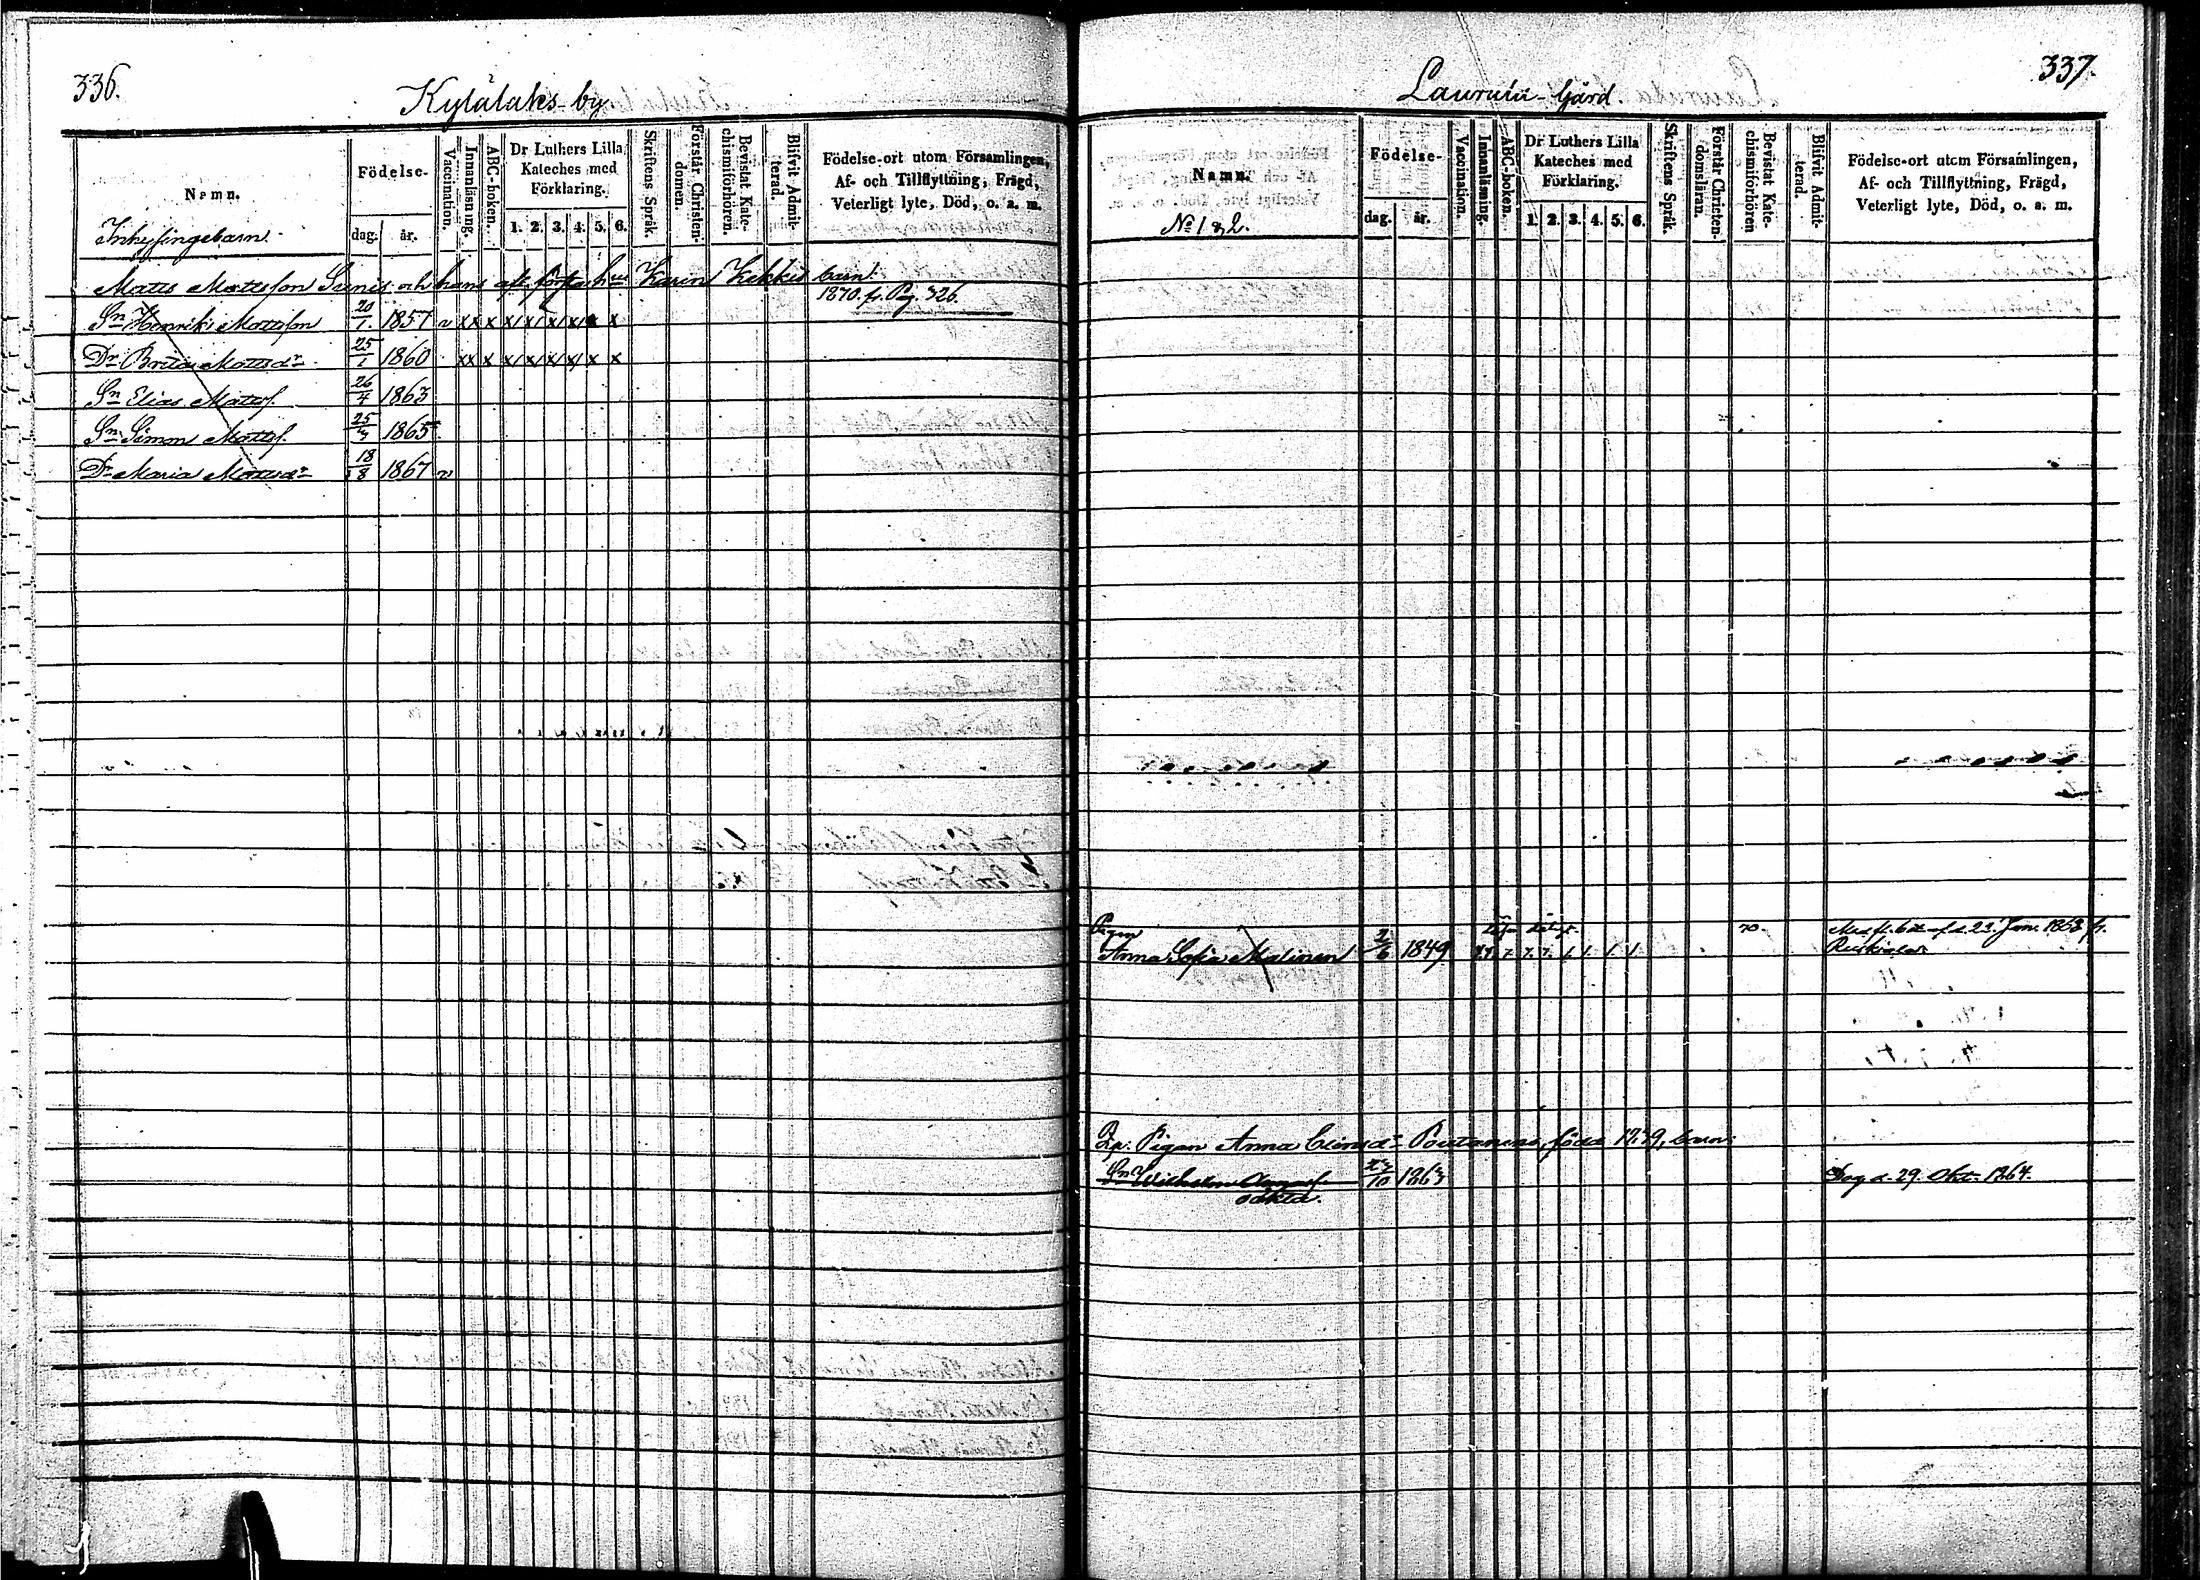 336.
Kylälaks-by
Namn.
Födelse-
dag.
år.
Vaccination.
Innanläsning.
ABC-boken.
Dr Luthers Lilla
Kateches med
Förklaring.
1. 2. 3. 4. 5. 6.
Skriftens Språk.
Förstår Christen-
domen.
Bevistat Kate-
chismiförhören.
Blifvit Admit-
terad.
Födelse-ort utom Församlingen,
Af- och Tillflyttning, Frägd,
Veterligt lyte, Död, o. a. m.
Inhysingebarn.
Matts Mattsson och hans första Karin barn:
1870. fr. Pag. 326.
Sn Henrik Mattsson 20/1. 1857 v xx x x/ x/ x/ x/ x x
Dr Brita Mattsdr 25/1 1860 xx x x/ x/ x/ x/ x x
Sn Elias Mattss. 26/4 1863
Sn Simon Mattss. 25/3 1865
Dr Maria Mattsdr 18/8 1867 v
337.
Laurula-Gård.
Namn.
No 1 & 2.
Födelse-
dag.
år.
Vaccination.
Innanläsning.
ABC-boken.
Dr Luthers Lilla
Kateches med
Förklaring.
1. 2. 3. 4. 5. 6.
Skriftens Språk.
Förstår Christen-
domsläran.
Bevistat Kate-
chismiförhören
Blifvit Admit-
terad.
Födelse-ort utom Församlingen,
Af- och Tillflyttning, Frägd,
Veterligt lyte, Död, o. a. m.
Pigan 70. Med fl. bet. af d. 22. Jan. 1868 fr.
Anna Sofia Malinen 2/6 1849 Ruskiala.
Pigan Anna Poutanens, född barn:
Sn Wilhelm 10 1863 Dog d. 29. Okt. 1864.
oäkta.